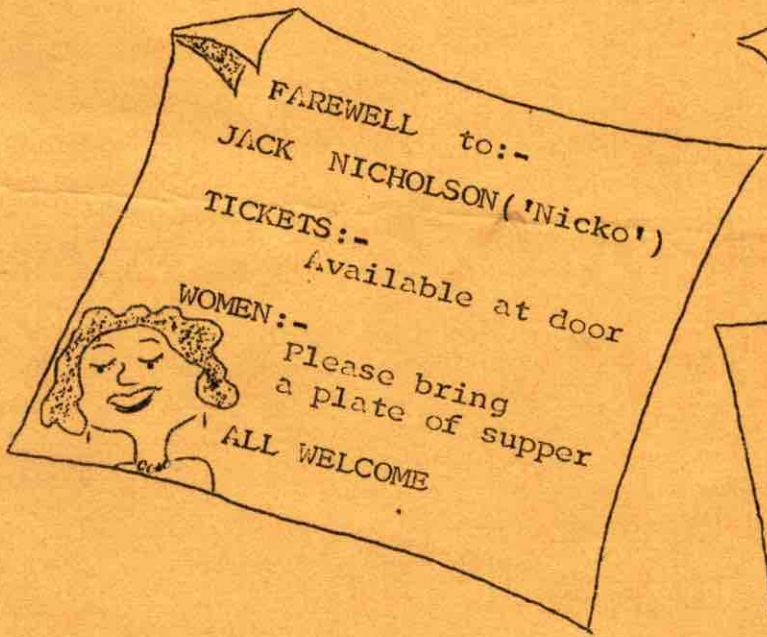 FAREWELL to:-
JACK NICHOLSON('Nicko')
TICKETS:-
Available at door
WOMEN:-
Please bring
a plate of supper
ALL WELCOME